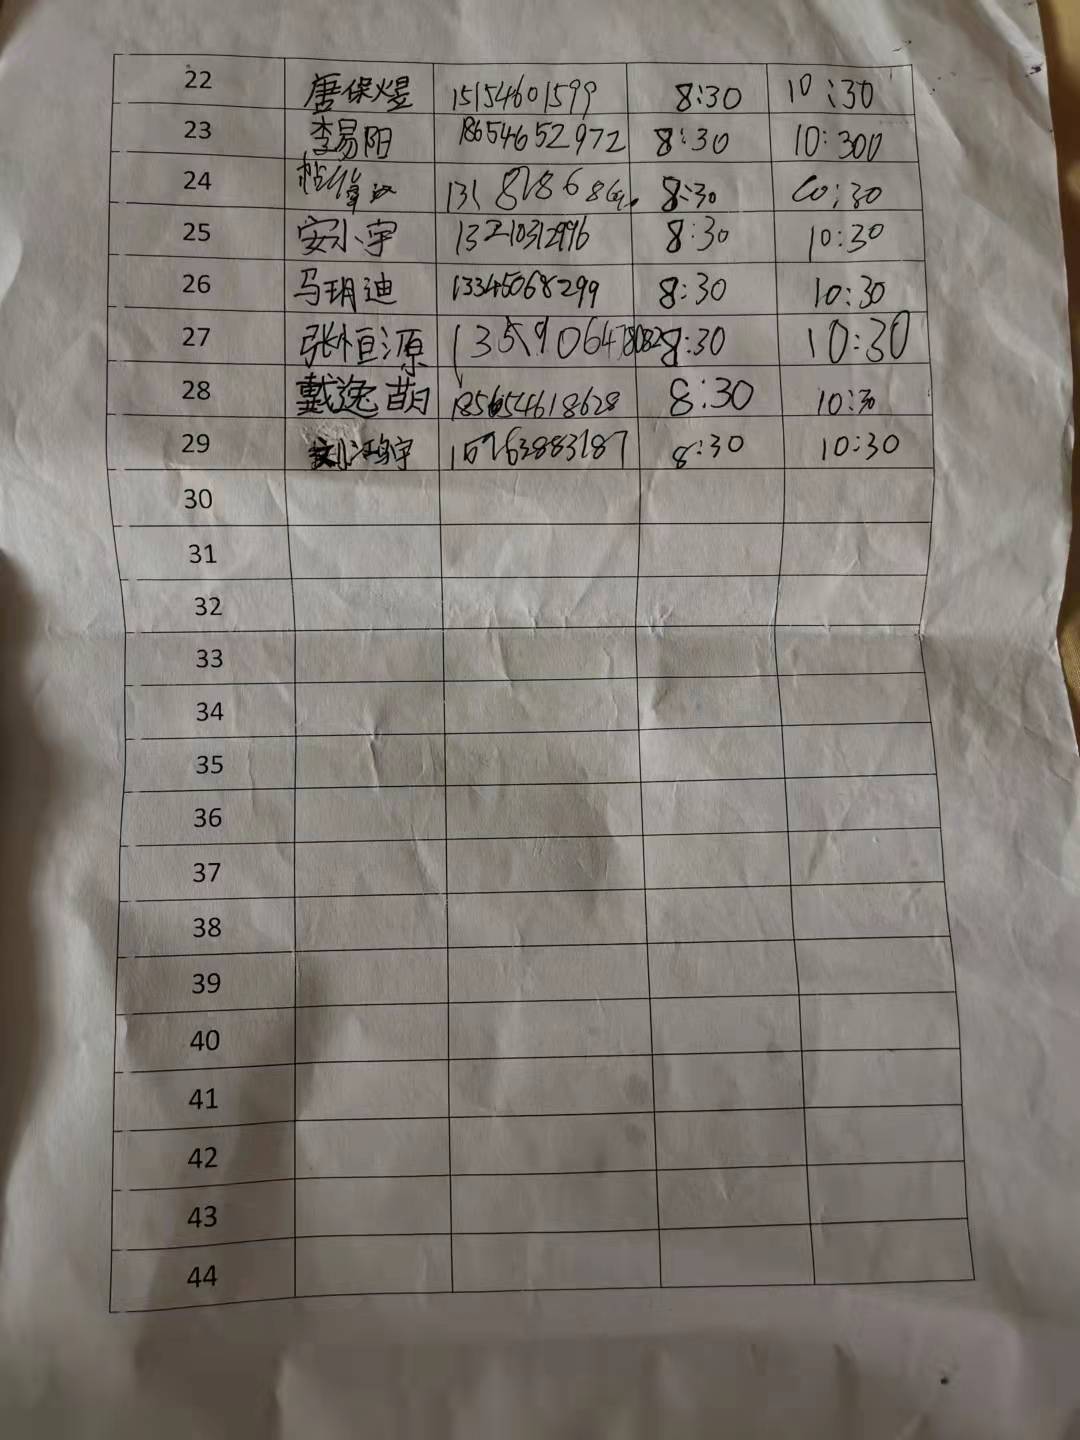 22 唐保煜 15154601599 8:30 10:30
23 李易阳 18654652972 8:30 10:300
24 8:30 10:30
25 安小宇 13210312996 8:30 10:30
26 马玥迪 13345068299 8:30 10:30
27 张恒源 1359106478082 8:30 10:30
28 戴逸萌 185654618628 8:30 10:30
29 8:30 10:30
30
31
32
33
34
35
36
37
38
39
40
41
42
43
44